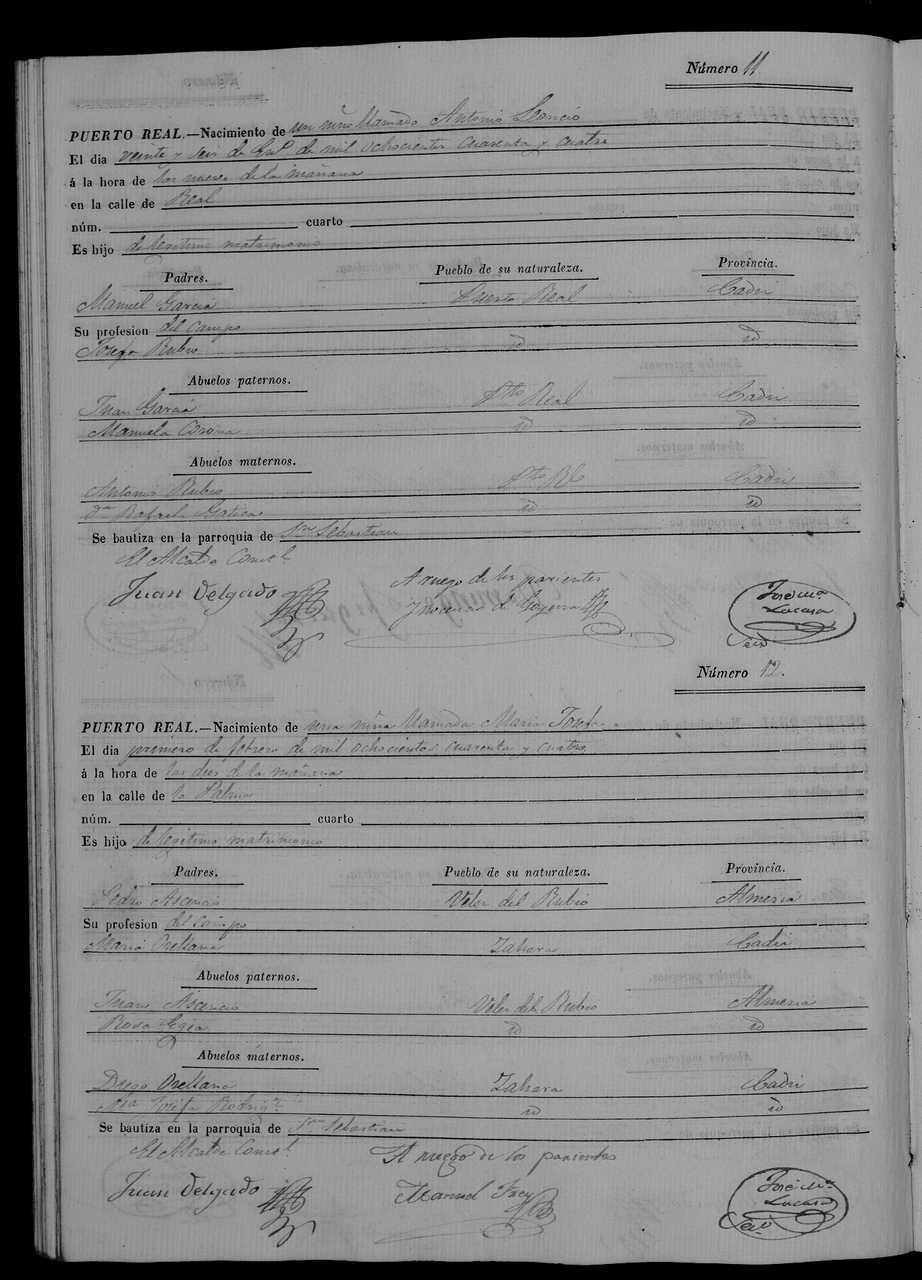 Número 11.
PUERTO REAL.—Nacimiento de un niño llamado Antonio
El dia veinte y seis de En.º de mil ochocientos cuarenta y cuatro
á la hora de las nueve de la mañana
en la calle de Real
núm. cuarto
Es hijo de legitimo matrimonio
Padres. Pueblo de su naturaleza. Provincia.
Manuel Garcia Puerto Real Cadiz
Su profesion del campo
Josefa Rubio id id
Abuelos paternos.
Juan Garcia Pto Real Cadiz
Manuela Corona id id
Abuelos maternos.
Antonio Rubio Pto Rl Cadiz
Da Rafaela Gatica id id
Se bautiza en la parroquia de Sn Sebastian
El Alcalde Const.l
Juan Delgado A ruego de los parientes
José Ma
Lucasa
Srio
Número 12.
PUERTO REAL.—Nacimiento de una niña llamada Maria Josefa
El dia primero de febrero de mil ochocientos cuarenta y cuatro
á la hora de las diez de la mañana
en la calle de la Palma
núm. cuarto
Es hijo de legitimo matrimonio
Padres. Pueblo de su naturaleza. Provincia.
Pedro Ascencio Velez del Rubio Almeria
Su profesion del campo
Maria Orellana Zahara Cadiz
Abuelos paternos.
Juan Ascencio Velez del Rubio Almeria
Rosa Egea id id
Abuelos maternos.
Diego Orellana Zahara Cadiz
Ma Josefa Rodrigz id id
Se bautiza en la parroquia de Sn Sebastian
El Alcalde Const.l A ruego de los parientes
Juan Delgado Manuel Frey
José Ma
Lucasa
Srio